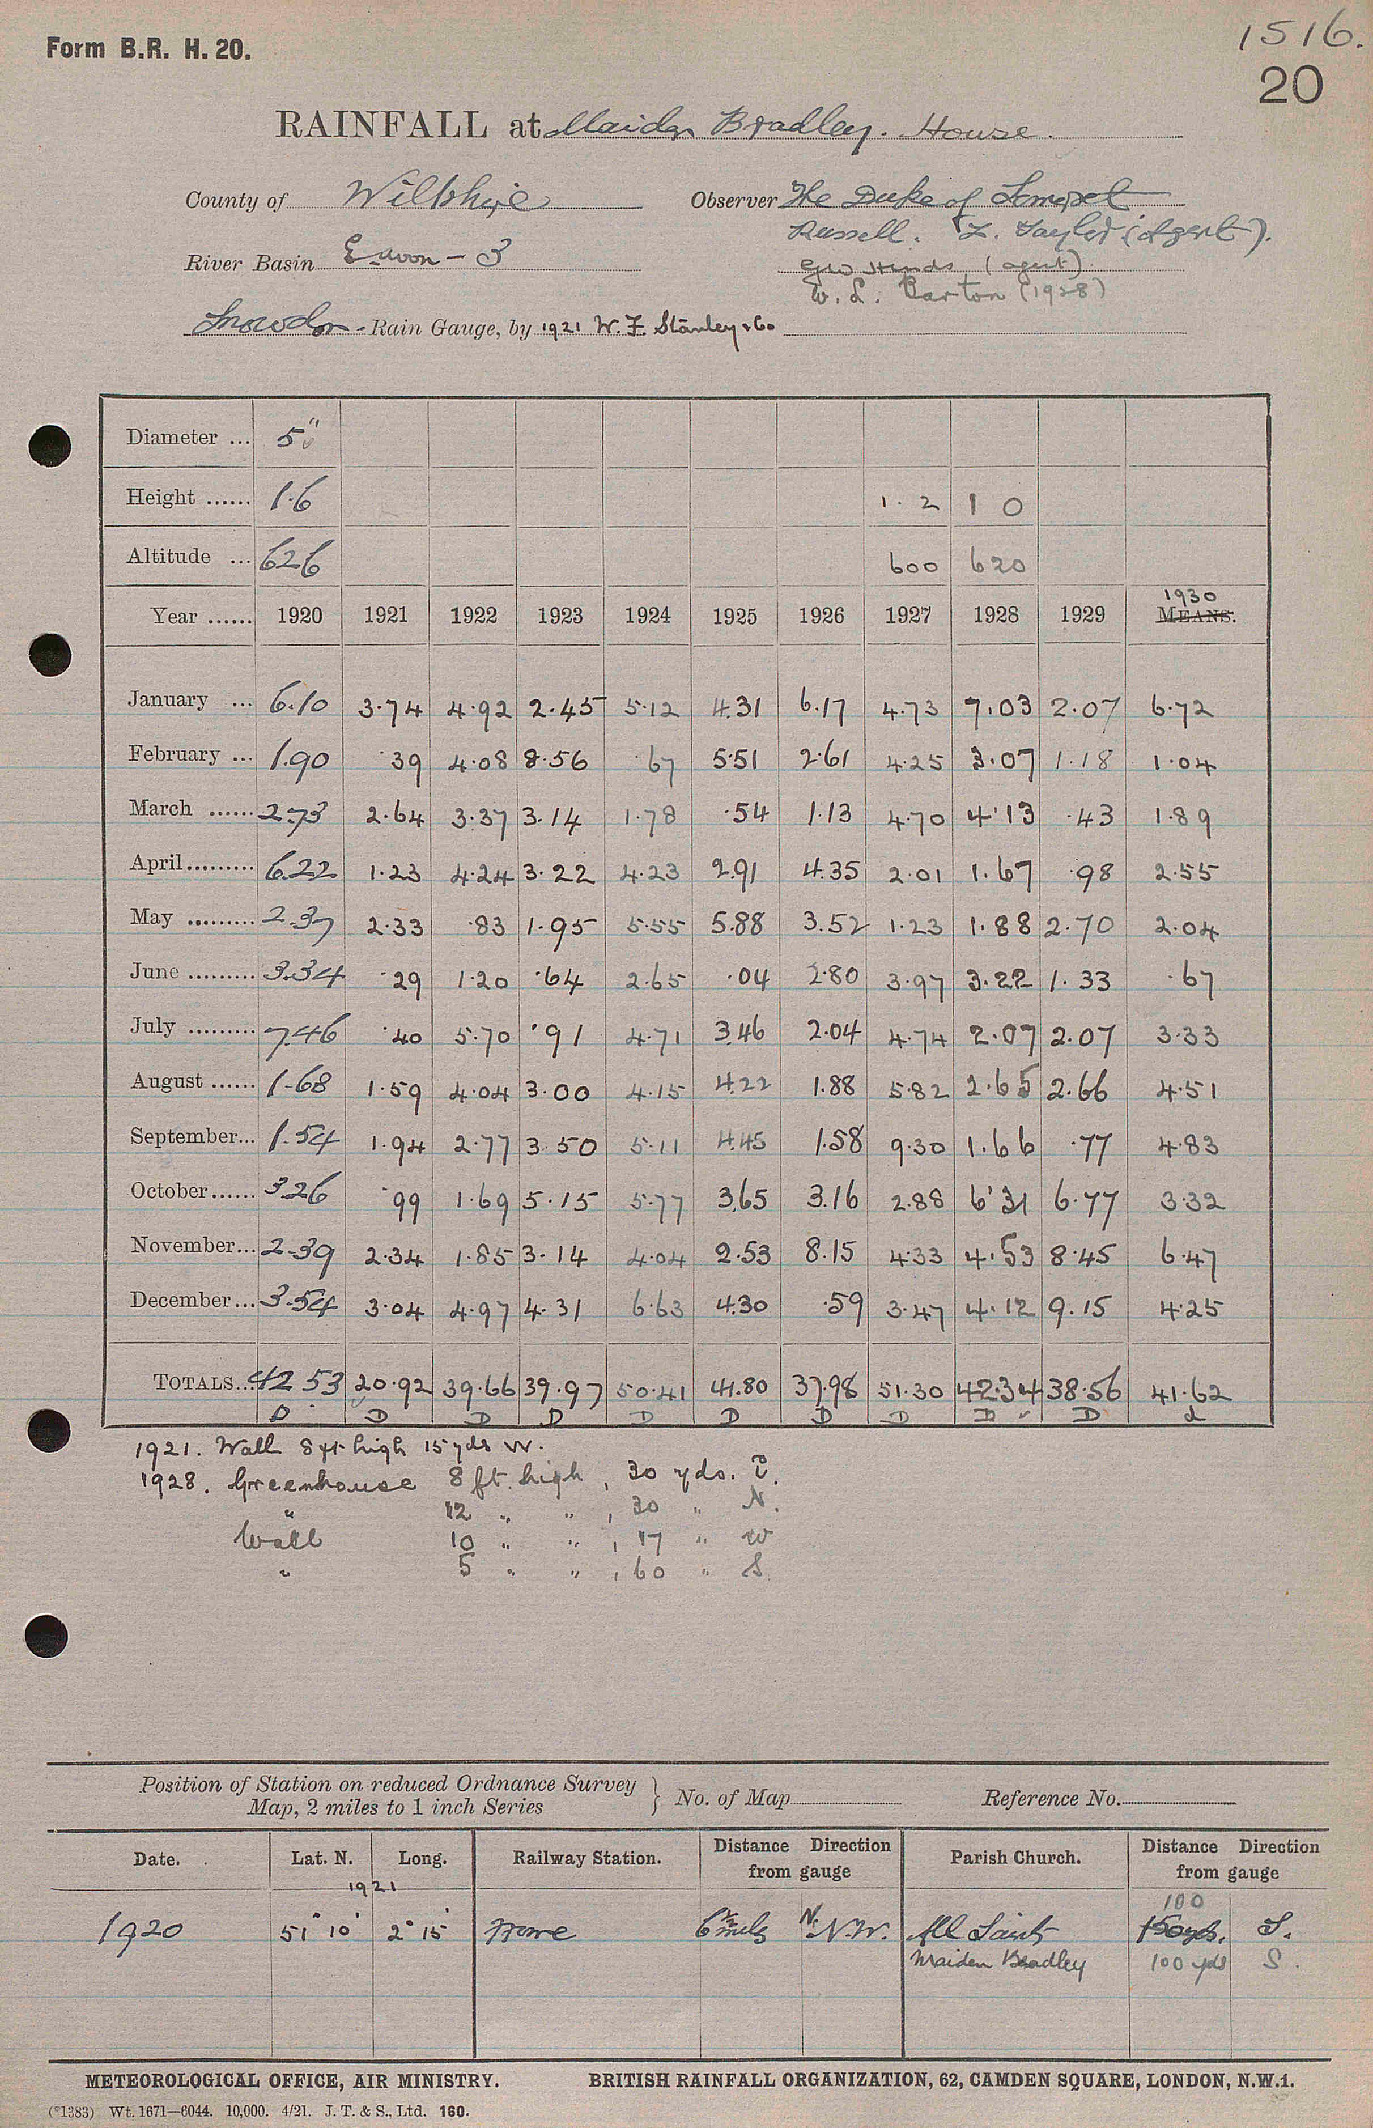 1516.
Form B.R. H. 20.
20
RAINFALL at Maiden Bradley. House.
County of Wiltshire Observer The Duke of Somerset
Russell. F. Taylor (Agent).
River Basin E. Avon - 3 Geo Hinds (agent)
W. L. Barton (1928)
Snowdon - Rain Gauge, by 1921 W. F. Stanley & Co
Diameter ... 5"
Height ...... 1.6 1. 2 1 0
Altitude ... 626 600 620
1930
Year ...... 1920 1921 1922 1923 1924 1925 1926 1927 1928 1929 MEANS.
January ... 6.10 3.74 4.92 2.45 5.12 4.31 6.17 4.73 7.03 2.07 6.72
February ... 1.90 .39 4.08 8.56 .67 5.51 2.61 4.25 3.07 1.18 1.04
March ...... 2.73 2.64 3.37 3.14 1.78 .54 1.13 4.70 4.13 .43 1.89
April ......... 6.22 1.23 4.24 3.22 4.23 2.91 4.35 2.01 1.67 .98 2.55
May ......... 2.37 2.33 .83 1.95 5.55 5.88 3.52 1.23 1.88 2.70 2.04
June ......... 3.34 .29 1.20 .64 2.65 .04 2.80 3.97 3.22 1.33 .67
July ......... 7.46 .40 5.70 .91 4.71 3.46 2.04 4.74 2.07 2.07 3.33
August ...... 1.68 1.59 4.04 3.00 4.15 4.22 1.88 5.82 2.65 2.66 4.51
September... 1.54 1.94 2.77 3.50 5.11 4.45 1.58 9.30 1.66 .77 4.83
October...... 3.26 .99 1.69 5.15 5.77 3.65 3.16 2.88 6.31 6.77 3.32
November... 2.39 2.34 1.85 3.14 4.04 2.53 8.15 4.33 4.53 8.45 6.47
December... 3.54 3.04 4.97 4.31 6.63 4.30 .59 3.47 4.12 9.15 4.25
TOTALS... 42.53 20.92 39.66 39.97 50.41 41.80 37.98 51.30 42.34 38.56 41.62
D D D D D D D D D D d
1921. Wall 8 ft high 15 yds W.
1928. Greenhouse 8 ft. high, 30 yds. E.
" 12 " " , 30 " N.
Wall 10 " " , 17 " W
" 5 " " , 60 " S.
Position of Station on reduced Ordnance Survey
Map, 2 miles to 1 inch Series } No. of Map Reference No.
Date. Lat. N. Long. Railway Station. Distance Direction from gauge Parish Church. Distance Direction from gauge
1921
100
1920 51° 10' 2° 15' Frome 6½ mils N. N.W. All Saints 150 yds. S.
Maiden Bradley 100 yds S.
METEOROLOGICAL OFFICE, AIR MINISTRY. BRITISH RAINFALL ORGANIZATION, 62, CAMDEN SQUARE, LONDON, N.W.1.
(*1383) Wt. 1671—6044. 10,000. 4/21. J. T. & S., Ltd. 160.